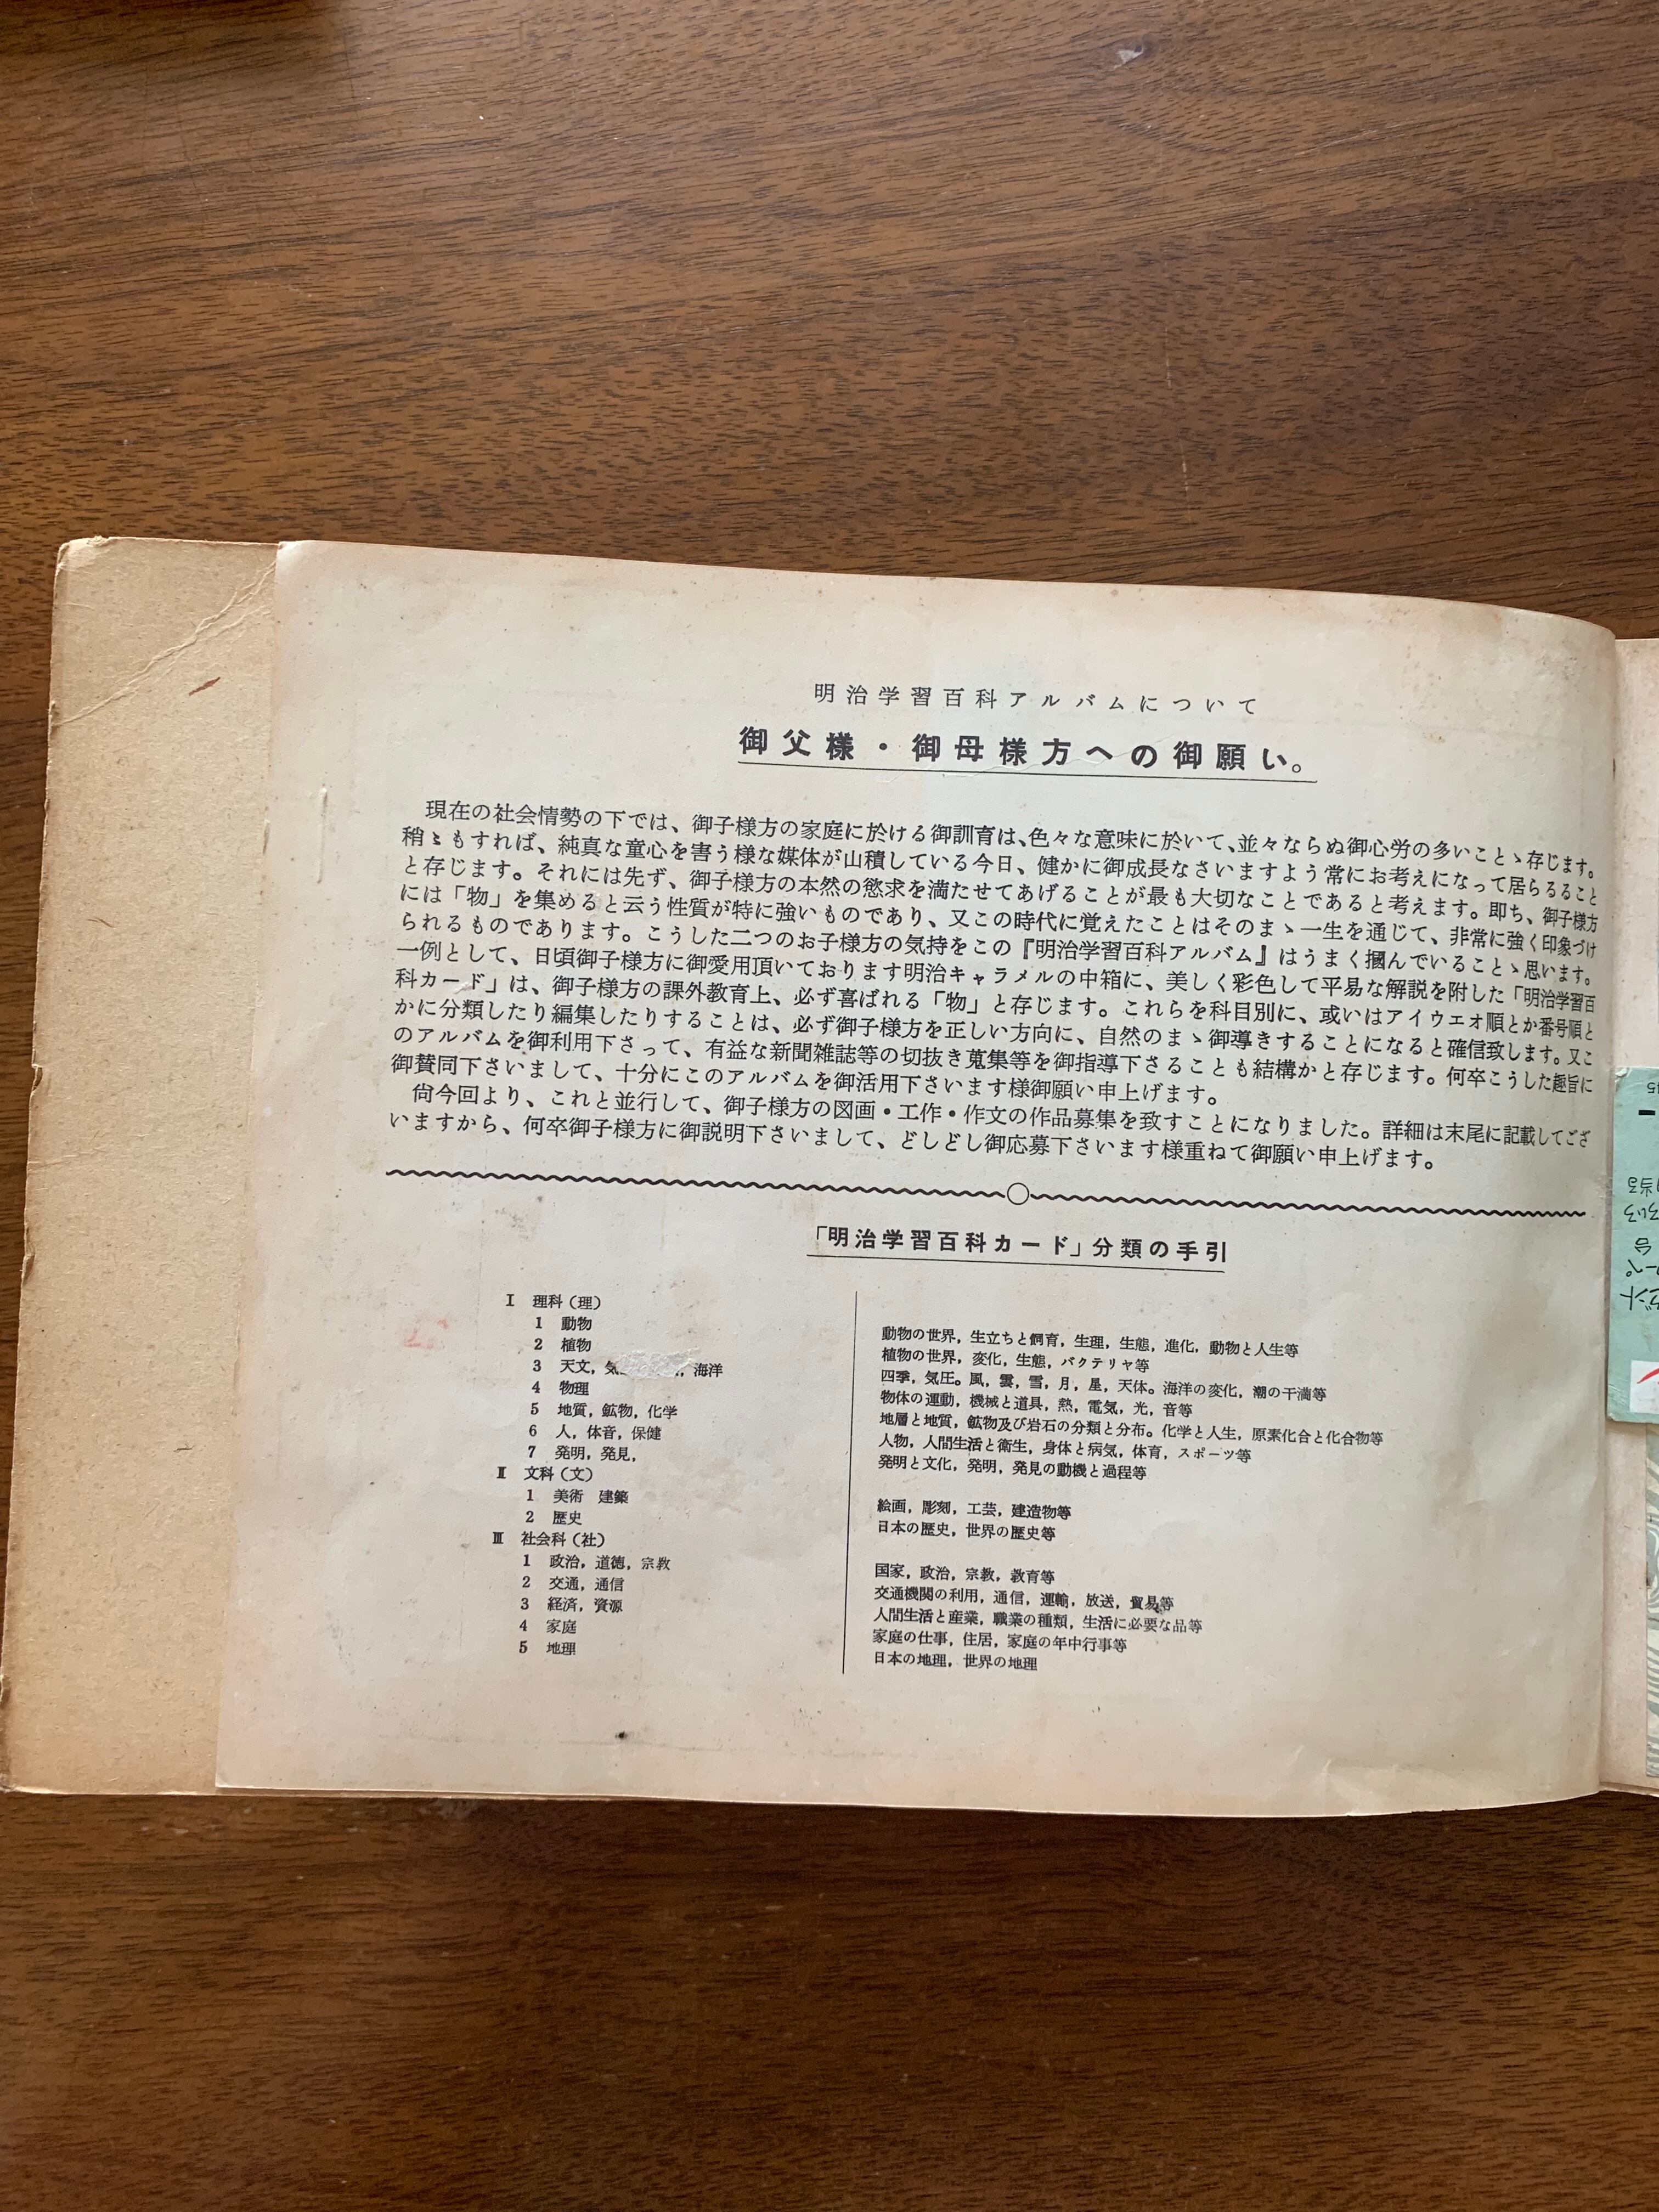 明治学習百科アルバムについて
御父様・御母様方への御願い。
現在の社会情勢の下では、御子様方の家庭に於ける御訓育は、色々な意味に於いて、並々ならぬ御心労の多いことゝ存じます。
稍〻もすれば、純真な童心を害う様な媒体が山積している今日、健かに御成長なさいますよう常にお考えになって居らるること
と存じます。それには先ず、御子様方の本然の慾求を満たせてあげることが最も大切なことであると考えます。即ち、御子様方
には「物」を集めると云う性質が特に強いものであり、又この時代に覚えたことはそのまゝ一生を通じて、非常に強く印象づけ
られるものであります。こうした二つのお子様方の気持をこの『明治学習百科アルバム』はうまく摑んでいることゝ思います。
一例として、日頃御子様方に御愛用頂いております明治キャラメルの中箱に、美しく彩色して平易な解説を附した「明治学習百
科カード」は、御子様方の課外教育上、必ず喜ばれる「物」と存じます。これらを科目別に、或いはアイウエオ順とか番号順と
かに分類したり編集したりすることは、必ず御子様方を正しい方向に、自然のまゝ御導きすることになると確信致します。又こ
のアルバムを御利用下さって、有益な新聞雑誌等の切抜き蒐集等を御指導下さることも結構かと存じます。何卒こうした趣旨に
御賛同下さいまして、十分にこのアルバムを御活用下さいます様御願い申上げます。
尙今回より、これと並行して、御子様方の図画・工作・作文の作品募集を致すことになりました。詳細は末尾に記載してござ
いますから、何卒御子様方に御説明下さいまして、どしどし御応募下さいます様重ねて御願い申上げます。
「明治学習百科カード」分類の手引
Ⅰ 理科（理）
1 動物 動物の世界，生立ちと飼育，生理，生態，進化，動物と人生等
2 植物 植物の世界，変化，生態，バクテリヤ等
3 天文，気 海洋 四季，気圧。風，雲，雪，月，星，天体。海洋の変化，潮の干満等
4 物理 物体の運動，機械と道具，熱，電気，光，音等
5 地質，鉱物，化学 地層と地質，鉱物及び岩石の分類と分布。化学と人生，原素化合と化合物等
6 人，体音，保健 人物，人間生活と衛生，身体と病気，体育，スポーツ等
7 発明，発見， 発明と文化，発明，発見の動機と過程等
Ⅱ 文科（文）
1 美術 建築 絵画，彫刻，工芸，建造物等
2 歴史 日本の歴史，世界の歴史等
Ⅲ 社会科（社）
1 政治，道徳，宗教 国家，政治，宗教，教育等
2 交通，通信 交通機関の利用，通信，運輸，放送，貿易等
3 経済，資源 人間生活と産業，職業の種類，生活に必要な品等
4 家庭 家庭の仕事，住居，家庭の年中行事等
5 地理 日本の地理，世界の地理